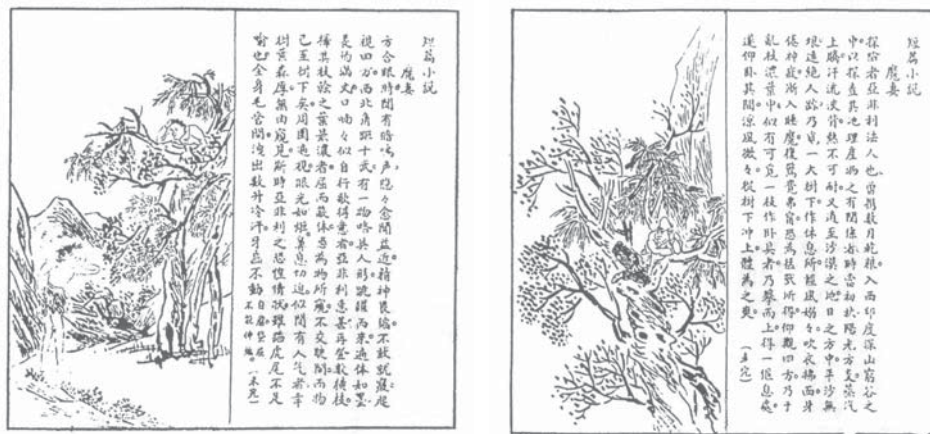 短篇小説
魔妻
探險者亞非利法人也。曾携數月乾粮入西印度深山窮谷之
中。以探查其地理産物之有關係者。時當初秋陽光方蒸汽
上騰汗流浹背。熱不可耐。又適至沙漠之地。日之方中。平沙無
垠。遠絶人跡。乃一大樹下作休息所。暖風嫋々吹衣拂面。身
倦神疲漸入睡魔。復驚覺弗寤。恐為猛獣所得。仰觀四方。乃于
亂枝濃葉中。似有可覓一枝作卧具者。乃攀而上。得一偃息處。
遂仰卧其間。涼風微々從樹下冲上體為之爽。（未完）
短篇小説
魔妻
方合眼時。聞有暗鳴声隐々。聞益近。精神畏縮。不敢就寢。起
視四方。西北角距十武。有一物。略具人形。跳躍而來。遍体如墨
長約滿丈。口呐々似自行歌得意者。亞非利恚甚。再登數矮枝
擇其枝幹之葉最濃者。屈而蔽体。恐為物所窺。不交睫間。而物
已至樹下矣。周圍遍視。眼光如炬。鼻息切迫。似聞有人气者。幸
樹葉森厚。無由窺見。斯時亞非利之恐惶情狀。雖蹈虎尾不足
喻也。全身毛管間洩出數升冷汗。牙齒不動（未完）